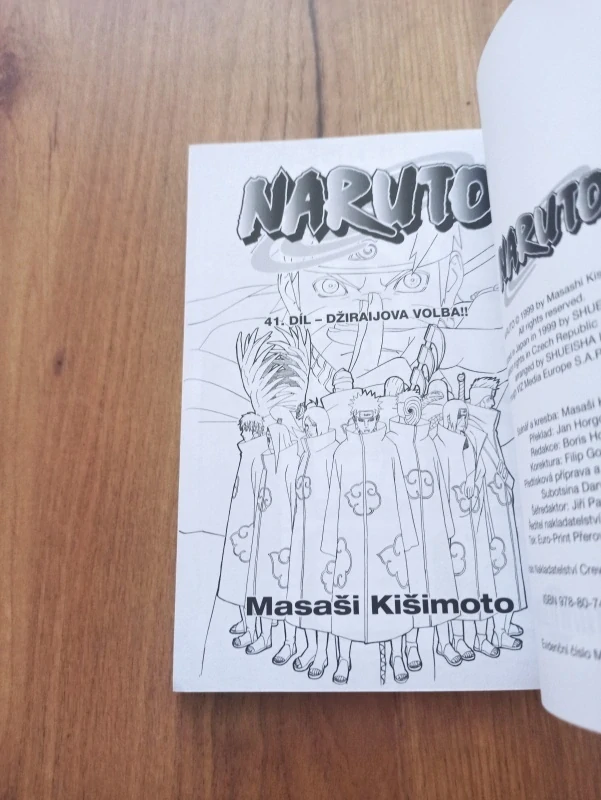 NARUTO
41. DÍL – DŽIRAIJOVA VOLBA!!
Masaši Kišimoto
NARUTO
© 1999 by Masashi
All rights reserved.
in Japan in 1999 by
rights in Czech Republic
arranged by SHUEISHA
VIZ Media Europe S.A.
a kresba: Masaši
Překlad: Jan
Redakce: Boris
Korektura: Filip
příprava a
Subotsina
Šéfredaktor: Jiří
nakladatelství
Tisk Euro-Print
nakladatelství
ISBN 978-80-
Evidenční číslo